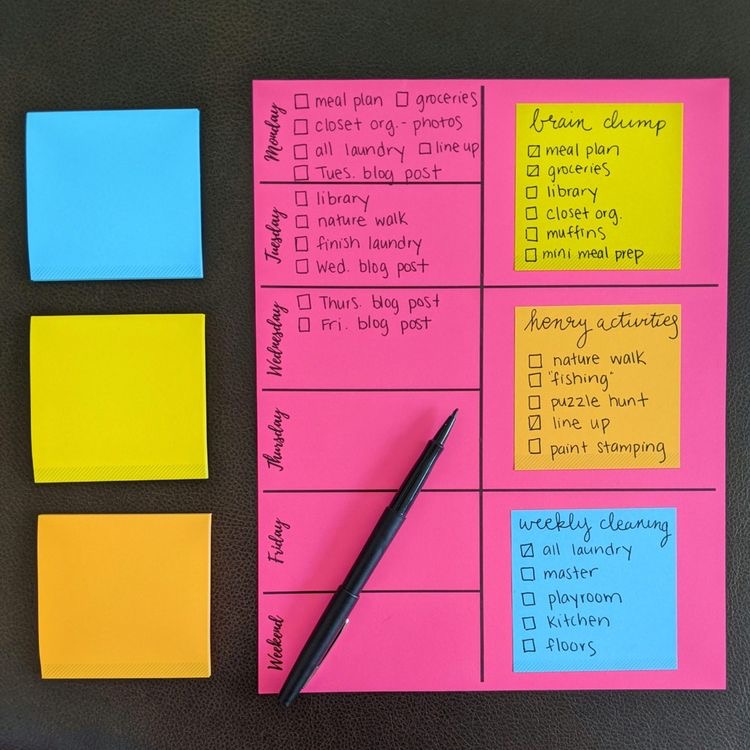 Monday
☐ meal plan ☐ groceries
☐ closet org. - photos
☐ all laundry ☐ line up
☐ Tues. blog post
Tuesday
☐ library
☐ nature walk
☐ finish laundry
☐ Wed. blog post
Wednesday
☐ Thurs. blog post
☐ Fri. blog post
Thursday
Friday
Weekend
brain dump
☑ meal plan
☑ groceries
☐ library
☐ closet org.
☐ muffins
☐ mini meal prep
henry activities
☐ nature walk
☐ "fishing"
☐ puzzle hunt
☑ line up
☐ paint stamping
weekly cleaning
☑ all laundry
☐ master
☐ playroom
☐ kitchen
☐ floors